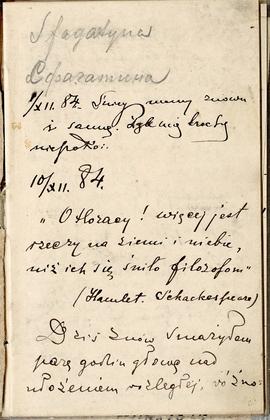 Sfagatyna
Сфагатина
1/XII. 84. Śnieg znowu
i sannę. trochę
niepokoi.
10/XII. 84.
„O Horacy! więcej jest
rzeczy na ziemi i niebie,
niż ich się śniło filozofom"
(Hamlet. Schackespeare)
Dziś znów smarzyłem
parę godzin głowę nad
ułożeniem rozległej, różno-